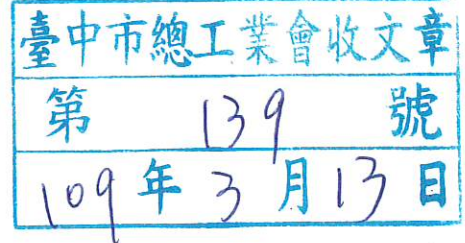 臺中市總工業會收文章
第 139 號
109年3月13日